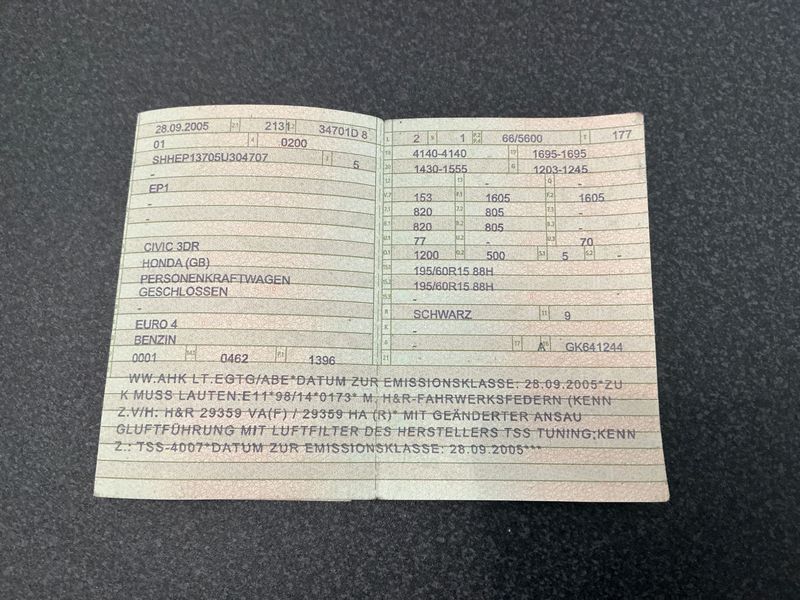 28.09.2005 2.1 2131 34701D 8
01 4 0200
SHHEP13705U304707 3 5
-
EP1
-
-
CIVIC 3DR
HONDA (GB)
PERSONENKRAFTWAGEN
GESCHLOSSEN
-
EURO 4
BENZIN
0001 0462 P.1 1396
L 2 9 1 P.2 P.4 66/5600 T 177
18 4140-4140 19 1695-1695
20 1430-1555 G 1203-1245
12 - Q -
V.7 153 F.1 1605 F.2 1605
7.1 820 7.2 805 7.3 -
8.1 820 8.2 805 8.3 -
U.1 77 U.2 - U.3 70
O.1 1200 O.2 500 S.1 5 S.2 -
15.1 195/60R15 88H
15.2 195/60R15 88H
15.3 -
R SCHWARZ 11 9
K -
6 - 17 A 16 GK641244
21
WW.AHK LT.EGTG/ABE*DATUM ZUR EMISSIONSKLASSE: 28.09.2005*ZU
K MUSS LAUTEN:E11*98/14*0173* M. H&R-FAHRWERKSFEDERN (KENN
Z.V/H: H&R 29359 VA(F) / 29359 HA (R)* MIT GEÄNDERTER ANSAU
GLUFTFÜHRUNG MIT LUFTFILTER DES HERSTELLERS TSS TUNING;KENN
Z.: TSS-4007*DATUM ZUR EMISSIONSKLASSE: 28.09.2005***